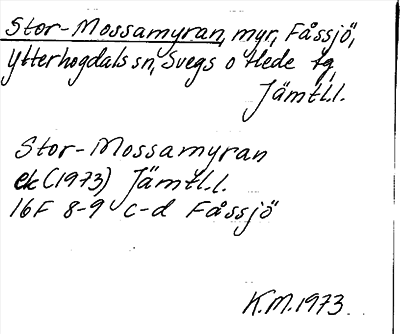 Stor-Mossamyran, myr, Fåssjö,
Ytterhogdals sn, Svegs o Hede tg,
Jämtl.l.
Stor-Mossamyran
ek (1973) Jämtl.l.
16F 8-9 c-d Fåssjö
K.M. 1973.